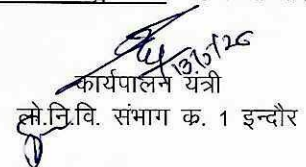 13/1/26
कार्यपालन यंत्री
लो.नि.वि. संभाग क. 1 इन्दौर